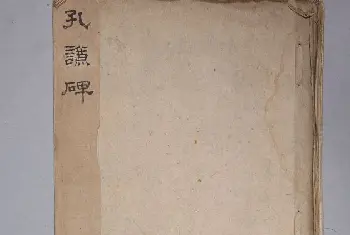 孔謙碑